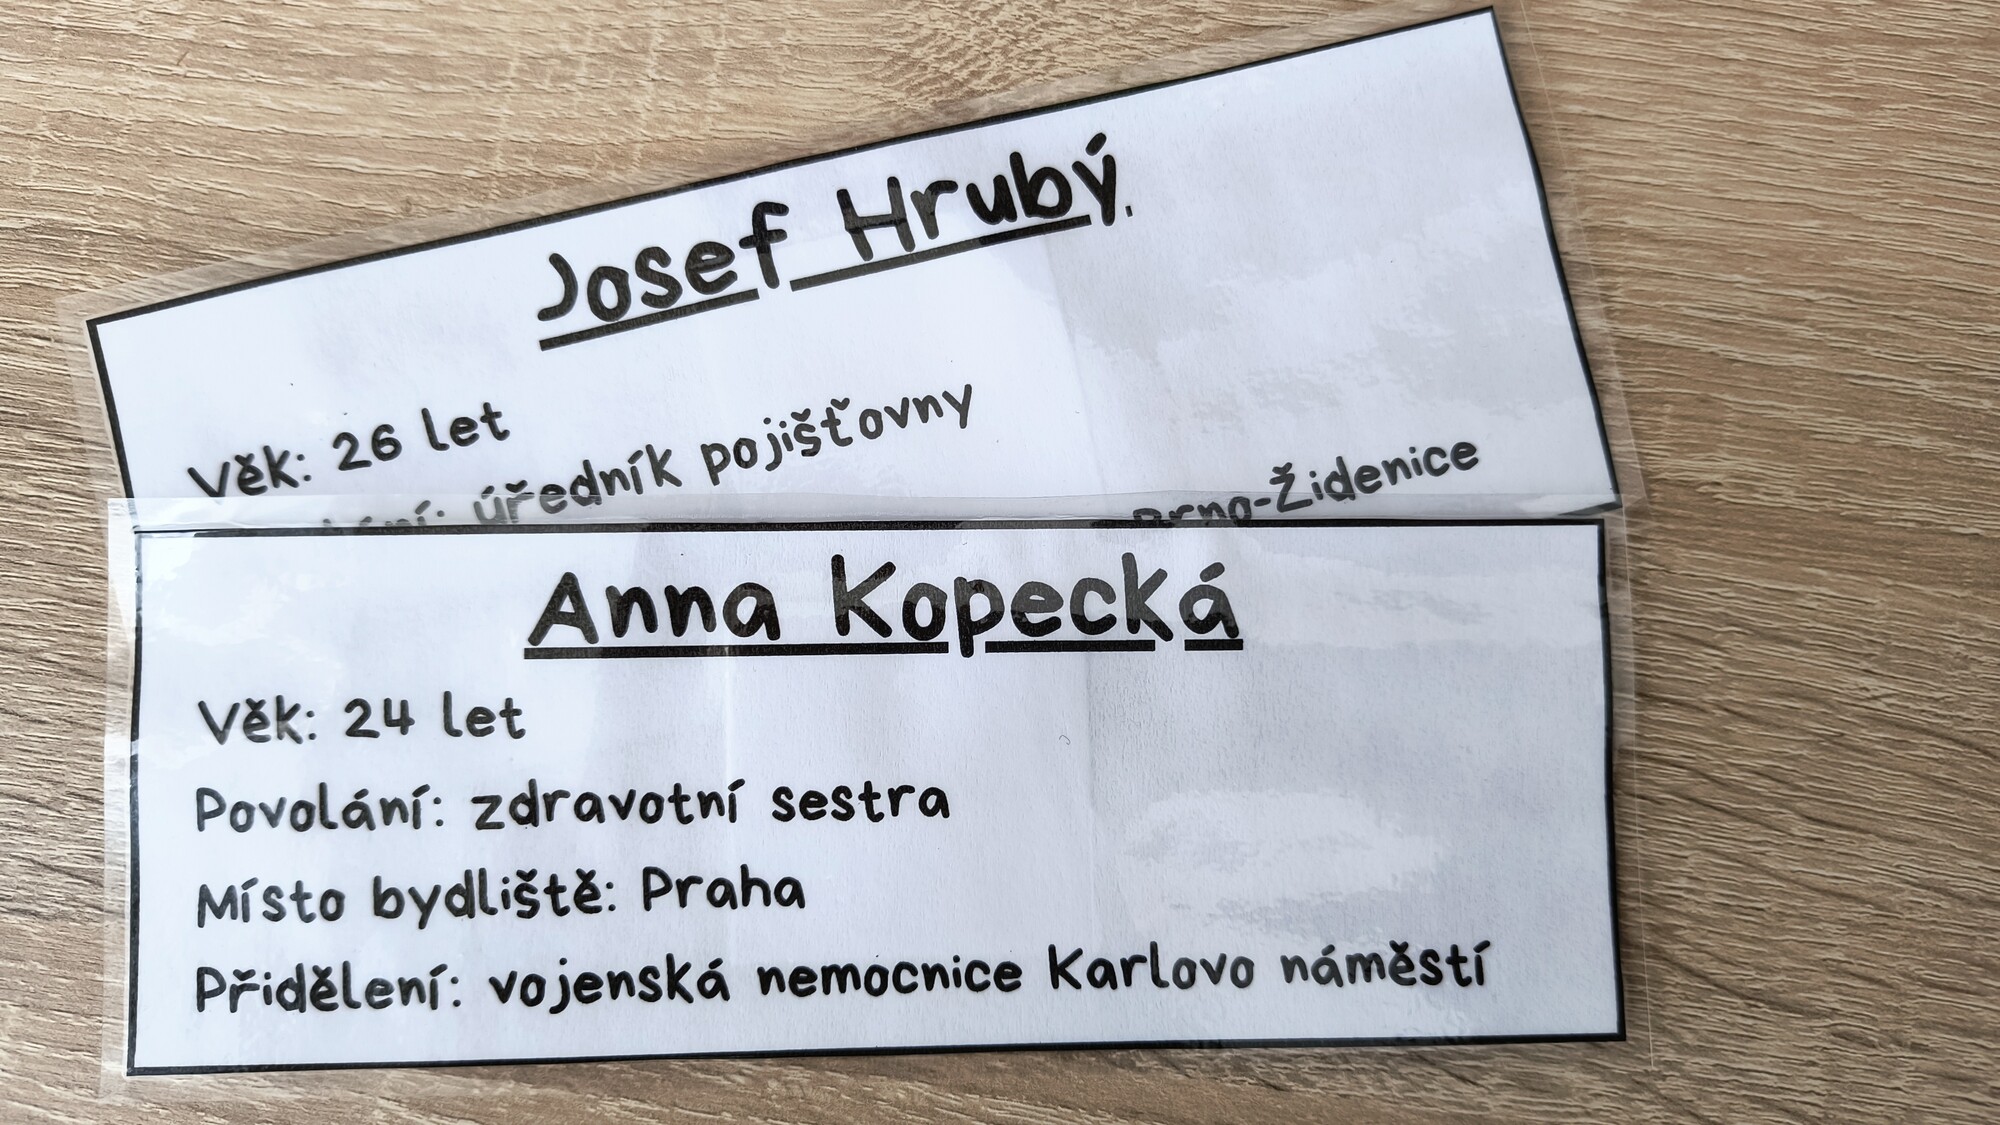 Josef Hrubý
Věk: 26 let
úředník pojišťovny
Brno-Židenice
Anna Kopecká
Věk: 24 let
Povolání: zdravotní sestra
Místo bydliště: Praha
Přidělení: vojenská nemocnice Karlovo náměstí